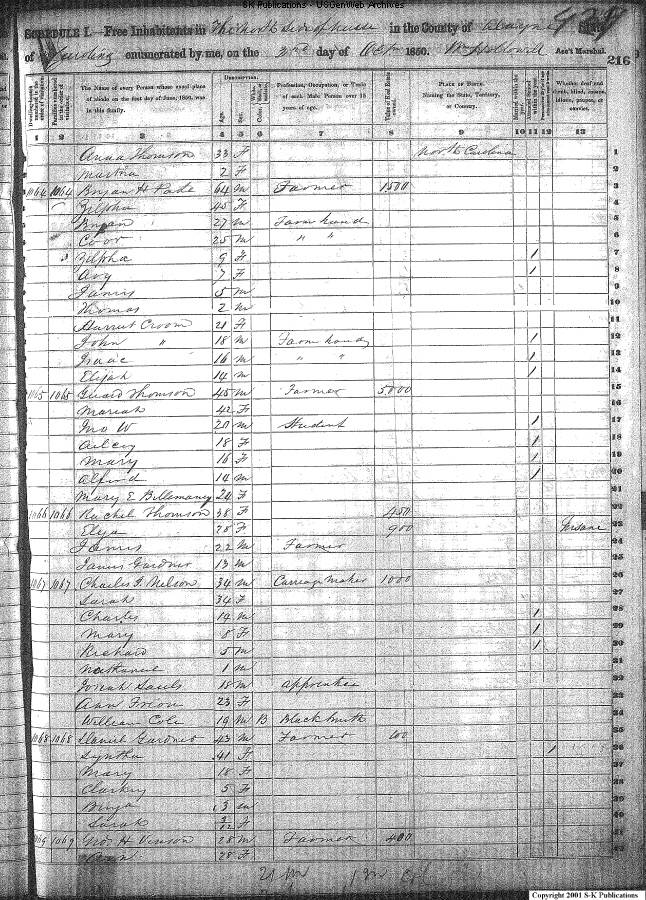 S-K Publications - USGenWeb Archives
SCHEDULE I.—Free Inhabitants in The North Side of in the County of Wayne State
of enumerated by me, on the 3rd day of Oct 1850. Wm Ass't Marshal. 428
216
DESCRIPTION.
Dwelling-houses numbered in the order of visitation. Families numbered in the order of visitation. The Name of every Person whose usual place of abode on the first day of June, 1850, was in this family. Age. Sex. Profession, Occupation, or Trade of each Male Person over 15 years of age. Value of Real Estate owned. PLACE OF BIRTH. Naming the State, Territory, or Country. Whether deaf and dumb, blind, insane, idiotic, pauper, or convict.
1 2 3 4 5 6 7 8 9 10 11 12 13
Anna Thomson 33 F North Carolina 1
Martha 2 F 2
1064 1064 Bryan H Pade 64 M Farmer 1500 3
Zilpha 45 F 4
Bryan 27 M Farm hand 5
Coor 25 M " " 6
Zilpha 9 F / 7
Avy 7 F / 8
James 5 M 9
Thomas 2 M 10
Harriet Croom 21 F 11
John " 18 M Farm hand / 12
Isaac 16 M " " / 13
Elijah 14 M / 14
1065 1065 Thomson 45 M Farmer 5000 15
Mariah 42 F 16
Jno W 20 M Student / 17
18 F / 18
Mary 16 F / 19
Alfred 14 M / 20
Mary E 24 F 21
1066 1066 Rachel Thomson 38 F 450 22
Eliza 28 F 900 Insane 23
James 22 M Farmer 24
James Gardner 13 M 25
1067 1067 Charles F. Nelson 34 M Carriage Maker 1000 26
Sarah 34 F
Charles 14 M / 28
Mary 8 F / 29
Richard 5 M / 30
Nathaniel 1 M
Josiah Sauls 18 M Apprentice
Ann 23 F
William Cole 19 M B Blacksmith
1068 1068 Daniel Gardner 43 M Farmer 100
Syntha 41 F /
Mary 18 F
5 F
3 M
Sarah 3/12 F
1069 1069 Jno. H Vinson 28 M Farmer 400
Ann 28 F
21 M
Copyright 2001 S-K Publications